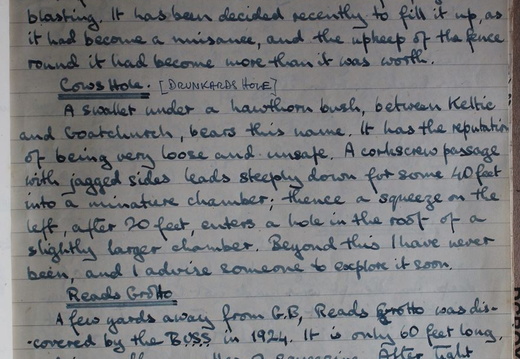 blasting. It has been decided recently to fill it up, as
it had become a nuisance, and the upkeep of the fence
round it had become more than it was worth.
Cows Hole. [DRUNKARDS HOLE]
A swallet under a hawthorn bush, between Keltic
and Goatchurch, bears this name. It has the reputation
of being very loose and unsafe. A corkscrew passage
with jagged sides leads steeply down for some 40 feet
into a minature chamber; thence a squeeze on the
left, after 20 feet, enters a hole in the roof of a
slightly larger chamber. Beyond this I have never
been, and I advise someone to explore it soon.
Reads Grotto
A few yards away from G.B, Reads Grotto was dis-
-covered by the BUSS in 1924. It is only 60 feet long,
of squeezing. After tight